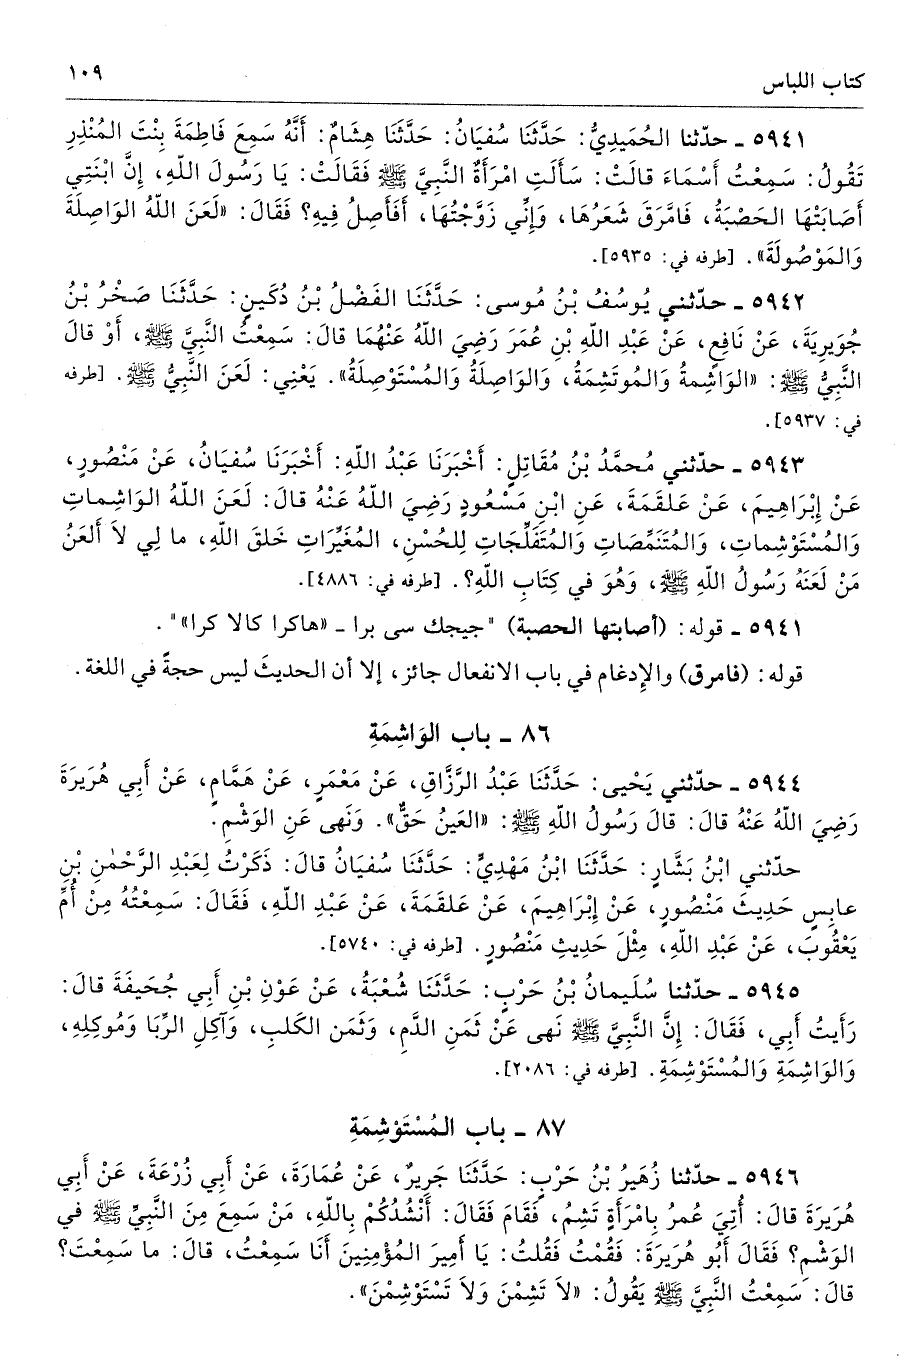 كتاب اللباس ١٠٩
٥٩٤١ ـ حدّثنا الحُمَيدِيُّ: حَدَّثَنَا سُفيَانُ: حَدَّثَنَا هِشَامٌ: أَنَّهُ سَمِعَ فَاطِمَةَ بِنْتَ المُنْذِرِ
تَقُولُ: سَمِعْتُ أَسْمَاءَ قالَتْ: سَأَلَتِ امْرَأَةٌ النَّبِيَّ ﷺ فَقَالَتْ: يَا رَسُولَ اللّهِ، إِنَّ ابْنَتِي
أَصَابَتْهَا الحَصْبَةُ، فَامَّرَقَ شَعَرُهَا، وَإِنِّي زَوَّجْتُهَا، أَفَأَصِلُ فِيهِ؟ فَقَالَ: «لَعَنَ اللّهُ الوَاصِلَةَ
وَالمَوْصُولَةَ». [طرفه في: ٥٩٣٥].
٥٩٤٢ ـ حدّثني يُوسُفُ بْنُ مُوسى: حَدَّثَنَا الفَضْلُ بْنُ دُكَينٍ: حَدَّثَنَا صَخْرُ بْنُ
جُوَيرِيَةَ، عَنْ نَافِعٍ، عَنْ عَبْدِ اللّهِ بْنِ عُمَرَ رَضِيَ اللّهُ عَنْهُمَا قالَ: سَمِعْتُ النَّبِيَّ ﷺ، أَوْ قالَ
النَّبِيُّ ﷺ: «الوَاشِمةُ وَالمُوتَشِمَةُ، وَالوَاصِلَةُ وَالمُسْتَوْصِلَةُ». يَعْنِي: لَعَنَ النَّبِيُّ ﷺ. [طرفه
في: ٥٩٣٧].
٥٩٤٣ ـ حدّثني مُحمَّدُ بْنُ مُقَاتِلٍ: أَخْبَرَنَا عَبْدُ اللّهِ: أَخْبَرَنَا سُفيَانُ، عَنْ مَنْصُورٍ،
عَنْ إِبْرَاهِيمَ، عَنْ عَلقَمَةَ، عَنِ ابْنِ مَسْعُودٍ رَضِيَ اللّهُ عَنْهُ قالَ: لَعَنَ اللّهُ الوَاشِماتِ
وَالمُسْتَوْشِماتِ، وَالمُتَنَمِّصَاتِ وَالمُتَفَلِّجَاتِ لِلحُسْنِ، المُغَيِّرَاتِ خَلقَ اللّهِ، ما لِي لاَ أَلعَنُ
مَنْ لَعَنَهُ رَسُولُ اللّهِ ﷺ، وَهُوَ في كِتَابِ اللّهِ؟. [طرفه في: ٤٨٨٦].
٥٩٤١ ـ قوله: (أصابتها الحصبة) "جيجك سى برا ـ «هاكرا كالا كرا»".
قوله: (فامرق) والإدغام في باب الانفعال جائز، إلا أن الحديثَ ليس حجةً في اللغة.
٨٦ ـ باب الوَاشِمَةِ
٥٩٤٤ ـ حدّثني يَحْيى: حَدَّثَنَا عَبْدُ الرَّزَّاقِ، عَنْ مَعْمَرٍ، عَنْ هَمَّامٍ، عَنْ أَبِي هُرَيرَةَ
رَضِيَ اللّهُ عَنْهُ قالَ: قالَ رَسُولُ اللّهِ ﷺ: «العَينُ حَقٌّ». وَنَهى عَنِ الوَشْمِ.
حدّثني ابْنُ بَشَّارٍ: حَدَّثَنَا ابْنُ مَهْدِيٍّ: حَدَّثَنَا سُفيَانُ قالَ: ذَكَرْتُ لِعَبْدِ الرَّحْمٰنِ بْنِ
عابِسٍ حَدِيثَ مَنْصُورٍ، عَنْ إِبْرَاهِيمَ، عَنْ عَلقَمَةَ، عَنْ عَبْدِ اللّهِ، فَقَالَ: سَمِعْتُهُ مِنْ أُمِّ
يَعْقُوبَ، عَنْ عَبْدِ اللّهِ، مِثْلَ حَدِيثِ مَنْصُورٍ. [طرفه في: ٥٧٤٠].
٥٩٤٥ ـ حدّثنا سُلَيمانُ بْنُ حَرْبٍ: حَدَّثَنَا شُعْبَةُ، عَنْ عَوْنِ بْنِ أَبِي جُحَيفَةَ قالَ:
رَأَيتُ أَبِي، فَقَالَ: إِنَّ النَّبِيَّ ﷺ نَهى عَنْ ثَمَنِ الدَّمِ، وَثَمَنِ الكَلبِ، وَآكِلِ الرِّبَا وَمُوكِلِهِ،
وَالوَاشِمَةِ وَالمُسْتَوْشِمَةِ. [طرفه في: ٢٠٨٦].
٨٧ ـ باب المُسْتَوْشِمَةِ
٥٩٤٦ ـ حدّثنا زُهَيرُ بْنُ حَرْبٍ: حَدَّثَنَا جَرِيرٌ، عَنْ عُمَارَةَ، عَنْ أَبِي زُرْعَةَ، عَنْ أَبِي
هُرَيرَةَ قالَ: أُتِيَ عُمرُ بِامْرَأَةٍ تَشِمُ، فَقَامَ فَقَالَ: أَنْشُدُكُمْ بِاللّهِ، مَنْ سَمِعَ مِنَ النَّبِيِّ ﷺ في
الوَشْمِ؟ فَقَالَ أَبُو هُرَيرَةَ: فَقُمْتُ فَقُلتُ: يَا أَمِيرَ المُؤْمِنِينَ أَنَا سَمِعْتُ، قالَ: ما سَمِعْتَ؟
قالَ: سَمِعْتُ النَّبِيَّ ﷺ يَقُولُ: «لاَ تَشِمْنَ وَلاَ تَسْتَوْشِمْنَ».